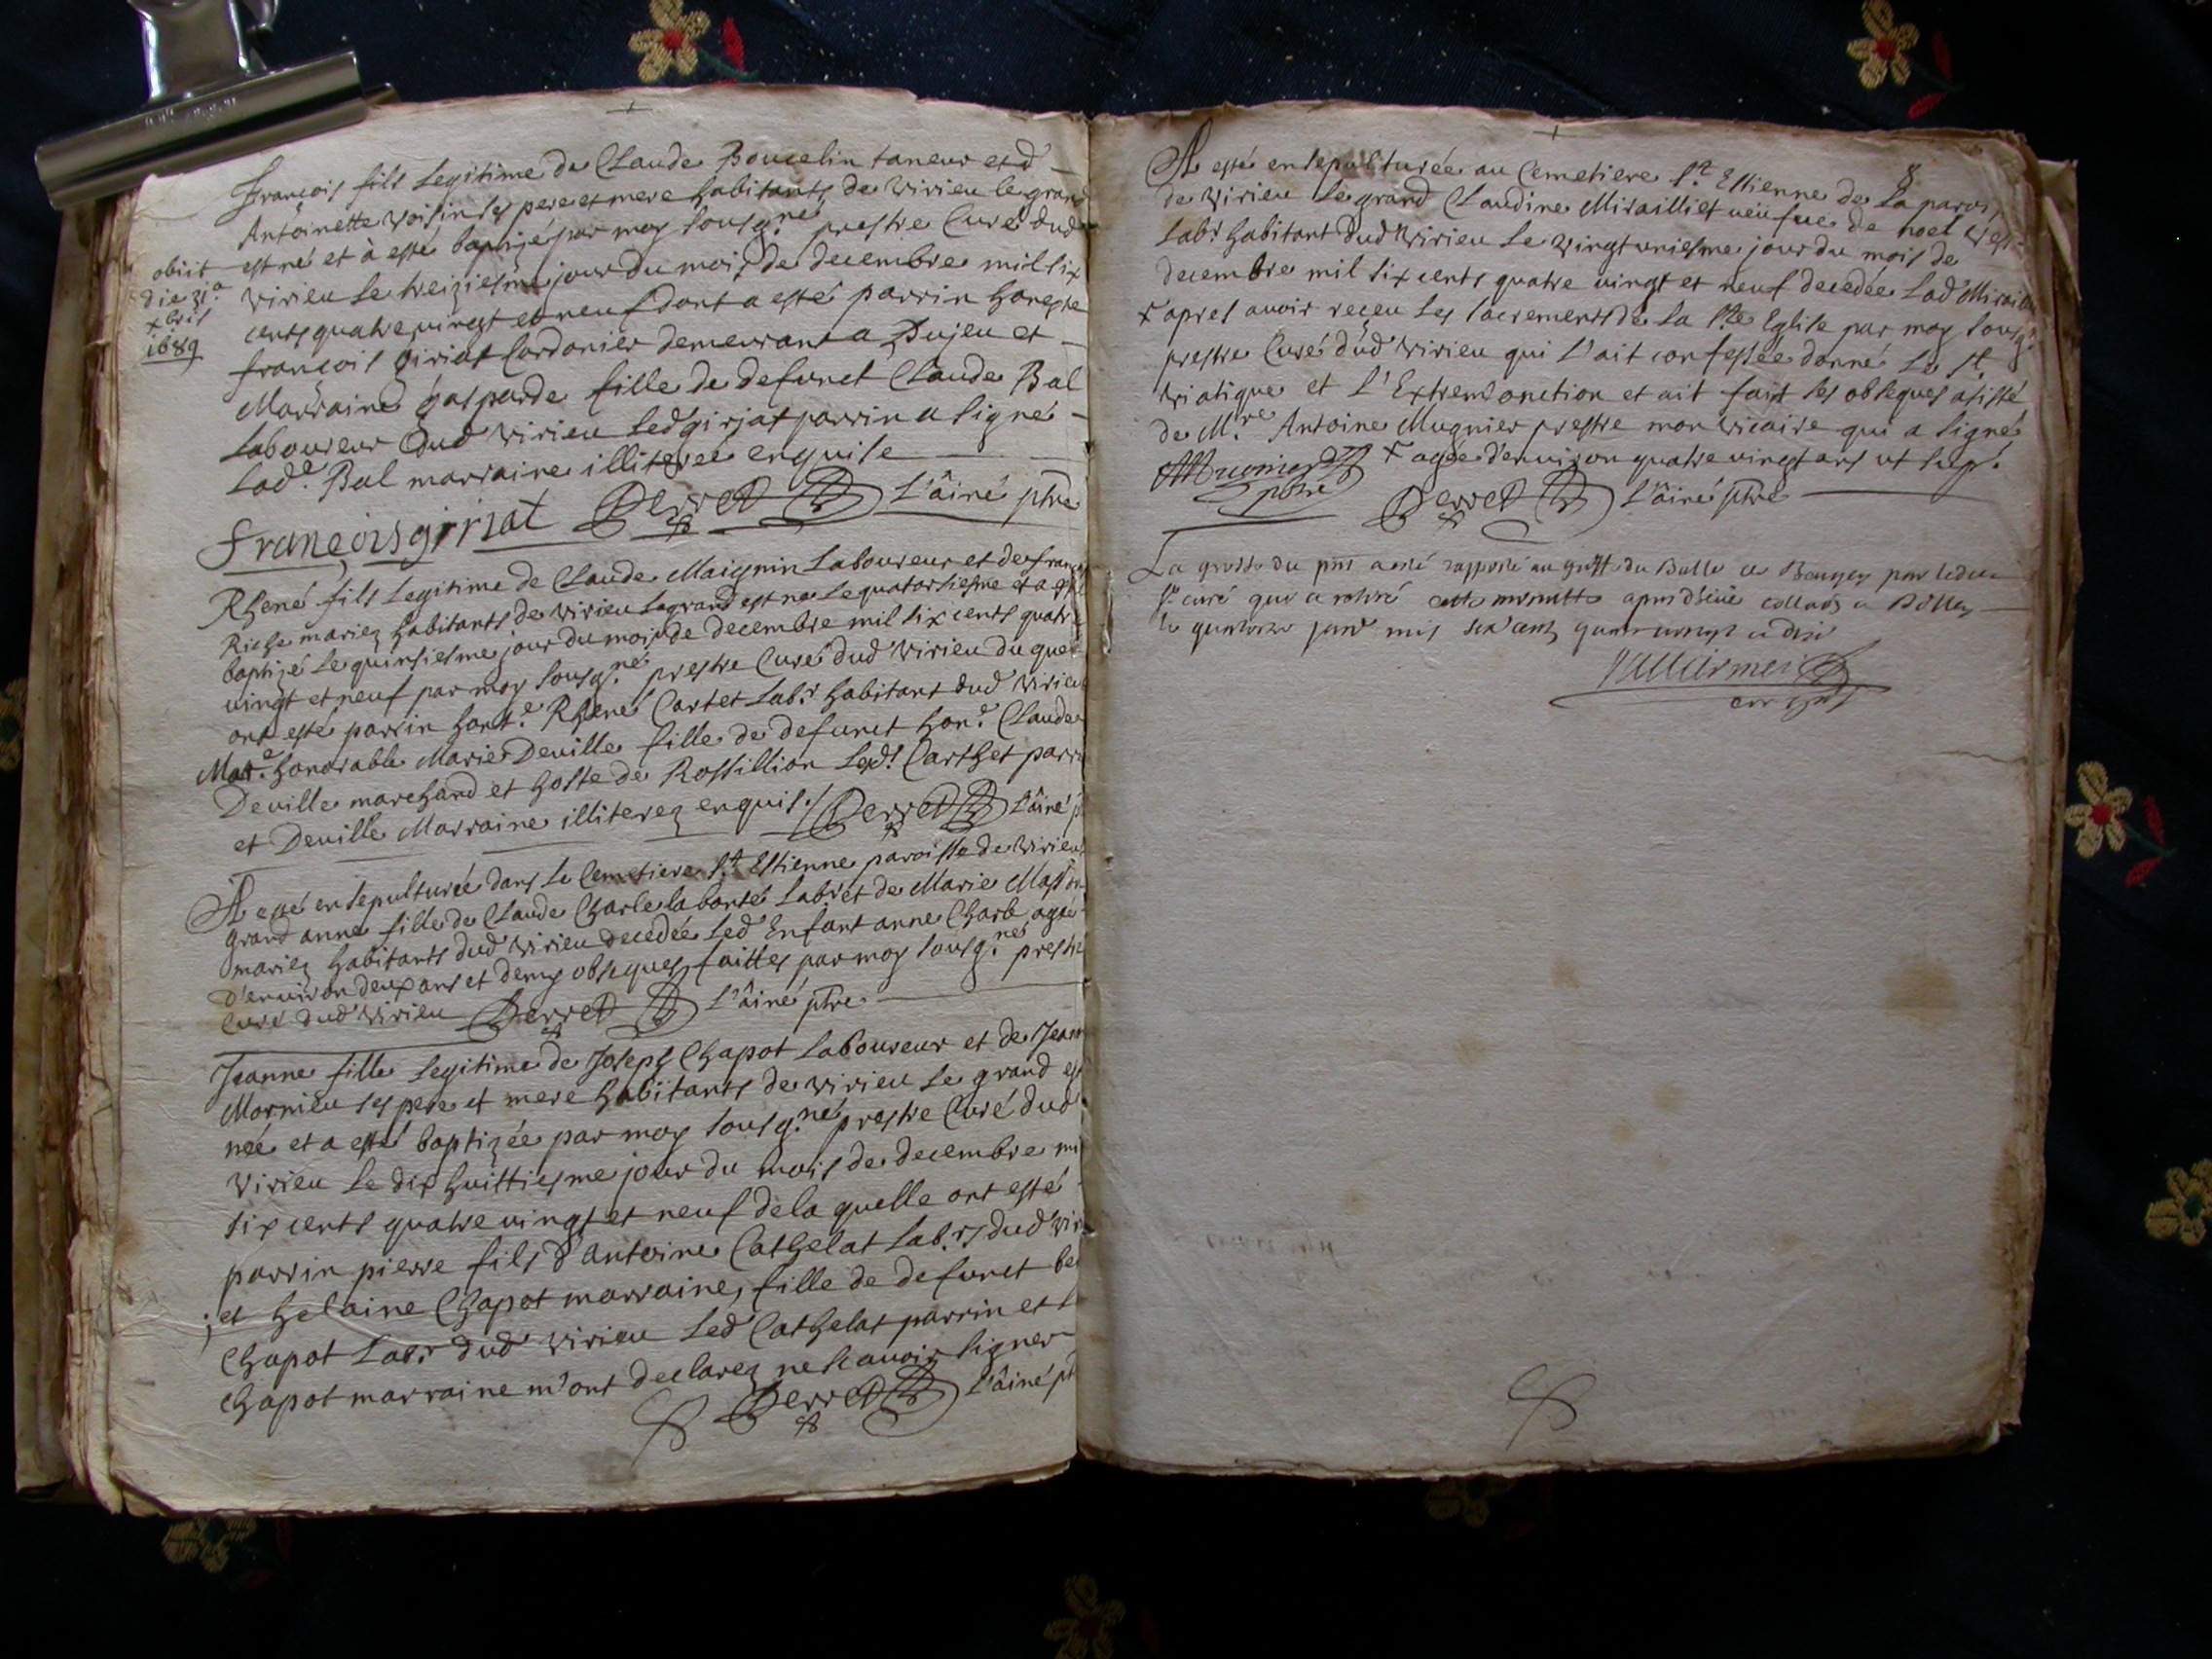 François fils Legitime de Claude Boucelin taneur et d'
Antoinette Voisin ses pere et mere habitants de Virieu le grand
est né et à esté baptizé par moy sousg.né prestre Curé dud
obiit
die 31.a
xbris
1689
Virieu Le treiziesme jour du mois de decembre mil six
cents quatre vingt et neuf dont a esté parrin honeste
françois Girjat Cordonier demeurant a Pujeu et
Marraine gasparde fille de defunct Claude Bal
Laboureur dud Virieu Led girjat parrin a signé
Lad.e Bal marraine illiterée enquise
françois girjat Perret L'âiné ptre
Rhené fils Legitime de Claude Maignin Laboureur et de fran
Riche mariez habitants de Virieu Legrand est né Le quatorsiesme et a esté
baptizé Le quinsiesme jour du mois de decembre mil six cents quatre
vingt et neuf par moy sousg.né prestre Curé dud Virieu du quel
ont esté parrin hon.e Rhené Cartet Lab.r habitant dud Virieu
Mar.e honorable Marie Deville fille de defunct hon.e Claude
Deville marchand et hoste de Rossillion Led.t Carthet parrin
et Deville Marraine illiterez enquis./ Perret L'âiné
A esté ensepulturée dans Le Cemetiere S.t Estienne paroisse de Virieu
grand anne fille de Claude Charle Labonté Lab.r et de Marie Masson
mariez habitants dud Virieu decedée Led Enfant anne Charle agée
d'environ deux ans et demy obseques faittes par moy sousg.né prestre
Curé dud Virieu Perret L'âiné ptre
Jeanne fille Legitime de Joseph Chapot Laboureur et de Jeanne
Mornieu ses pere et mere habitants de Virieu Le grand est
née et a esté baptizée par moy sousg.né prestre Curé dud
Virieu Le dix huittiesme jour du mois de decembre mil
six cents quatre vingt et neuf de la quelle ont esté
parrin pierre fils d'antoine Cathelat Lab.rs dud Virieu
et helaine Chapot marraine, fille de defunct be
Chapot Lab.r dud Virieu Led Cathelat parrin et L
Chapot marraine m'ont declarez ne scavoir signer
Perret L'âiné pt
8
A esté ensepulturée au Cemetiere S.t Estienne de La parois
de Virieu Le grand Claudine Miraillet veüfue de noel
Lab.r habitant dud Virieu Le vingt uniesme jour du mois de
decembre mil six cents quatre vingt et neuf decedée Lad Miraillet
x apres avoir reçeu Les sacrements de La s.te Eglise par moy sousg.né
prestre Curé dud Virieu qui L'ait confessée donné Le S.t
Viatique et L'Extremonction et ait fait ses obseques assisté
de M.re Antoine Mugnier prestre mon vicaire qui a signé
x agée d'environ quatre vingt ans ut sup.
Mugnier ptre
Perret L'âiné ptre
La grosse du pnt a esté rapporté au greffe du Balle de Beugey par ledit
s.r curé qui a retiré cette minutte collnée a Belley
le quatorze janv mis six cent quatre vingt et dix